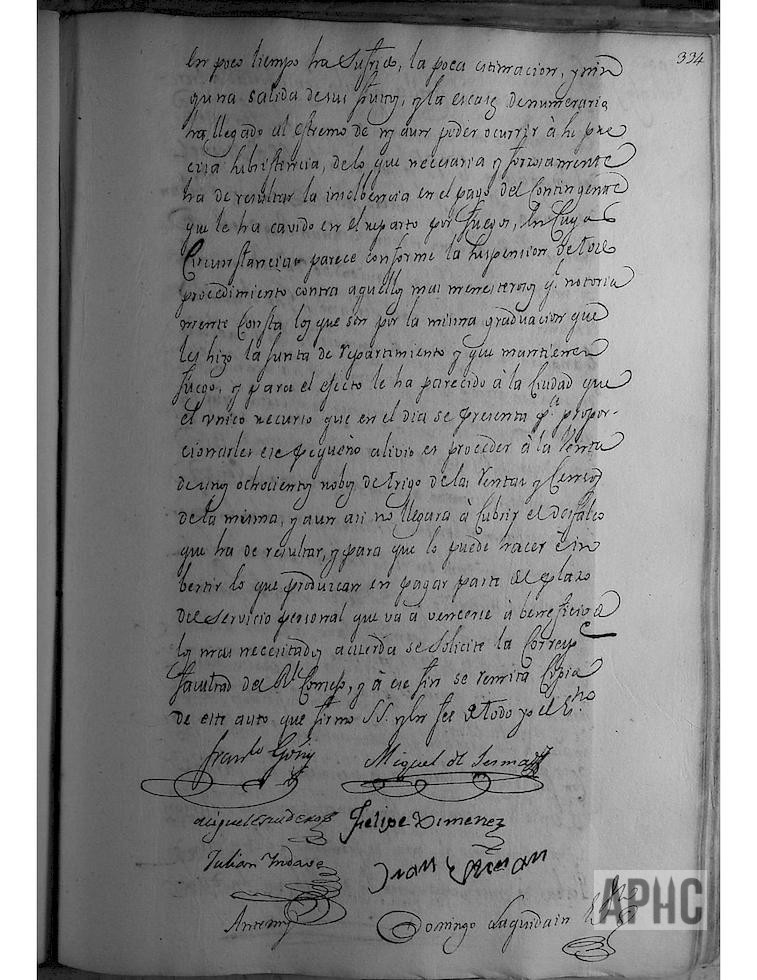 334
en poco tiempo ha sufrido, la poca estimacion, y nin
guna salida de sus frutos, y la escasez de numerario
ha llegado al estremo de no aun poder ocurrir à su pre
cisa subsistencia, de lo que necesaria y forzosamente
ha de resultar la insolbencia en el pago del Contingente
que le ha cavido en el reparto por fuegos, en Cuyas
Circunstancias parece conforme la suspension de todo
procedimiento contra aquellos mas menesterosos q. notoria
mente Consta los que son por la misma graduacion que
les hizo la Junta de repartimiento y que mantienen
fuego, y para el efecto le ha parecido à la Ciudad que
el vnico recurso que en el dia se presenta pª propor-
cionarles ese pequeño alivio es proceder à la Venta
de unos ochocientos robos de trigo de las Ventas y Censos
de la misma, y aun asi no llegara à Cubrir el desfalco
que ha de resultar, y para que lo puede hacer è in
bertir lo que produzcan en pagar parte del plazo
del servicio personal que va à vencerse à beneficio de
los mas necesitados acuerda se solicite la Corresp.te
facultad del Rl. Consejo, y à ese fin se remita Copia
de este auto que firmo SS. y en fee de todo yo el Es.no
Fran.co Goñi
Miguel de Sesma
Miguel Escudero
Felipe Ximenez
Julian Yndave
Juan
Antemi
Domingo Laquidain
APHC